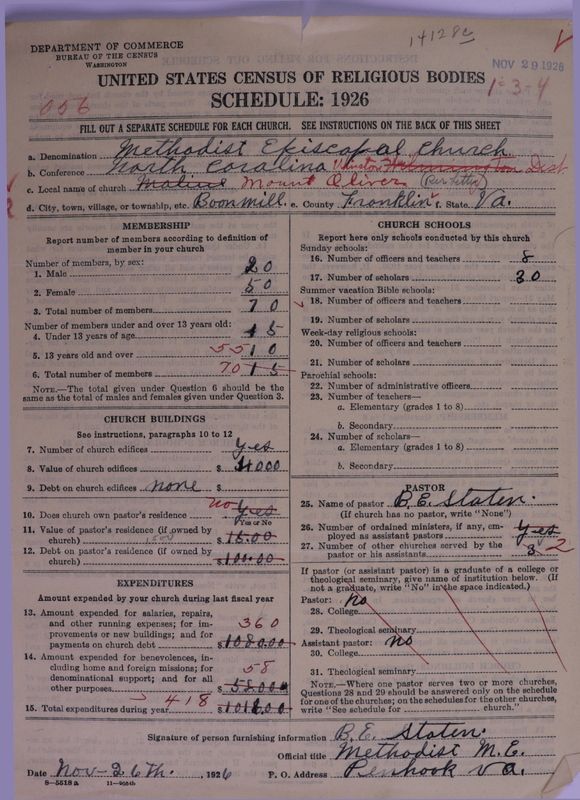 14128c
DEPARTMENT OF COMMERCE
BUREAU OF THE CENSUS
WASHINGTON
NOV 29 1926
UNITED STATES CENSUS OF RELIGIOUS BODIES
1-3-4
056
SCHEDULE: 1926
FILL OUT A SEPARATE SCHEDULE FOR EACH CHURCH. SEE INSTRUCTIONS ON THE BACK OF THIS SHEET
a. Denomination Methodist Episcopal Church
b. Conference North Carolina Winston Wilmington Dist
c. Local name of church Mount Oliver (Per Letter)
d. City, town, village, or township, etc. Boonmill. e. County Franklin f. State Va.
MEMBERSHIP
Report number of members according to definition of
member in your church
Number of members, by sex:
1. Male 20
2. Female 50
3. Total number of members 70
Number of members under and over 13 years old:
4. Under 13 years of age 15
5. 13 years old and over 55 10
6. Total number of members 70 15
NOTE.—The total given under Question 6 should be
same as the total of males and females given under Question 3.
CHURCH BUILDINGS
See instructions, paragraphs 10 to 12
7. Number of church edifices yes
8. Value of church edifices $ 4000
9. Debt on church edifices none $
10. Does church own pastor's residence no yes
Yes or No
11. Value of pastor's residence (if owned by
church) 1500 $ 15.00
12. Debt on pastor's residence (if owned by
church) $ 100.00
EXPENDITURES
Amount expended by your church during last fiscal year
13. Amount expended for salaries, repairs,
and other running expenses; for im- 360
provements or new buildings; and for
payments on church debt $ 1080.00
14. Amount expended for benevolences, in-
cluding home and foreign missions; for 58
denominational support; and for all
other purposes $ 58.00
15. Total expenditures during year 418 $
CHURCH SCHOOLS
Report here only schools conducted by this church
Sunday schools:
16. Number of officers and teachers 8
17. Number of scholars 30
Summer vacation Bible schools:
18. Number of officers and teachers
19. Number of scholars
Week-day religious schools:
20. Number of officers and teachers
21. Number of scholars
Parochial schools:
22. Number of administrative officers
23. Number of teachers—
a. Elementary (grades 1 to 8)
b. Secondary
24. Number of scholars—
a. Elementary (grades 1 to 8)
b. Secondary
PASTOR
25. Name of pastor B.E. Staten.
(If church has no pastor, write "None")
26. Number of ordained ministers, if any, em-
ployed as assistant pastors yes
27. Number of other churches served by the
pastor or his assistants 3 2
If pastor (or assistant pastor) is a graduate of a college or
theological seminary, give name of institution below. (If
not a graduate, write "No" in the space indicated.)
Pastor: no
28. College
29. Theological seminary
Assistant pastor: no
30. College
31. Theological seminary
NOTE.—Where one pastor serves two or more churches,
Questions 28 and 29 should be answered only on the schedule
for one of the churches; on the schedules for the other churches,
write "See schedule for church."
Signature of person furnishing information B.E. Staten.
Official title Methodist M.E.
Date Nov-26th., 1926 P. O. Address Penhook Va.
8-5518a 11-9054b